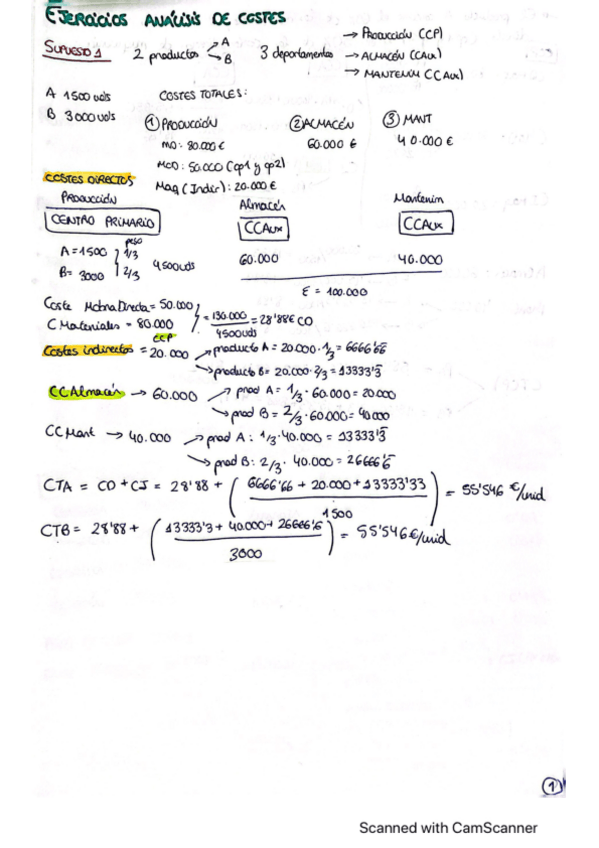 EJERCICIOS ANÁLISIS DE COSTES
SUPUESTO 1 2 productos A B 3 departamentos → Producción (CCP)
→ ALMACÉN (CCAux)
→ MANTENIM (CCAux)
A 1500 uds COSTES TOTALES:
B 3000 uds
① PRODUCCIÓN ② ALMACÉN ③ MANT
MO: 80.000 € 60.000 € 40.000 €
MOD: 50.000 (op1 y op2)
Maq (Indir): 20.000 €
COSTES DIRECTOS
PRODUCCIÓN Almacén Mantenim
CENTRO PRIMARIO CCAux CCAux
A = 1500 peso 1/3 4500 uds 60.000 40.000
B = 3000 2/3
Σ = 100.000
Coste M Obra Directa = 50.000
C Materiales = 80.000 = 130.000 / 4500 uds = 28'88 € CO
CCP
Costes indirectos = 20.000 → producto A = 20.000 · 1/3 = 6666'66
→ producto B = 20.000 · 2/3 = 13333'3
CC Almacén → 60.000 → prod A = 1/3 · 60.000 = 20.000
→ prod B = 2/3 · 60.000 = 40.000
CC Mant → 40.000 → prod A: 1/3 · 40.000 = 13333'3
→ prod B: 2/3 · 40.000 = 26666'6
CTA = CO + CI = 28'88 + (6666'66 + 20.000 + 13333'33 / 1500) = 55'546 €/unid
CTB = 28'88 + (13333'3 + 40.000 + 26666'6 / 3000) = 55'546 €/unid
①
Scanned with CamScanner